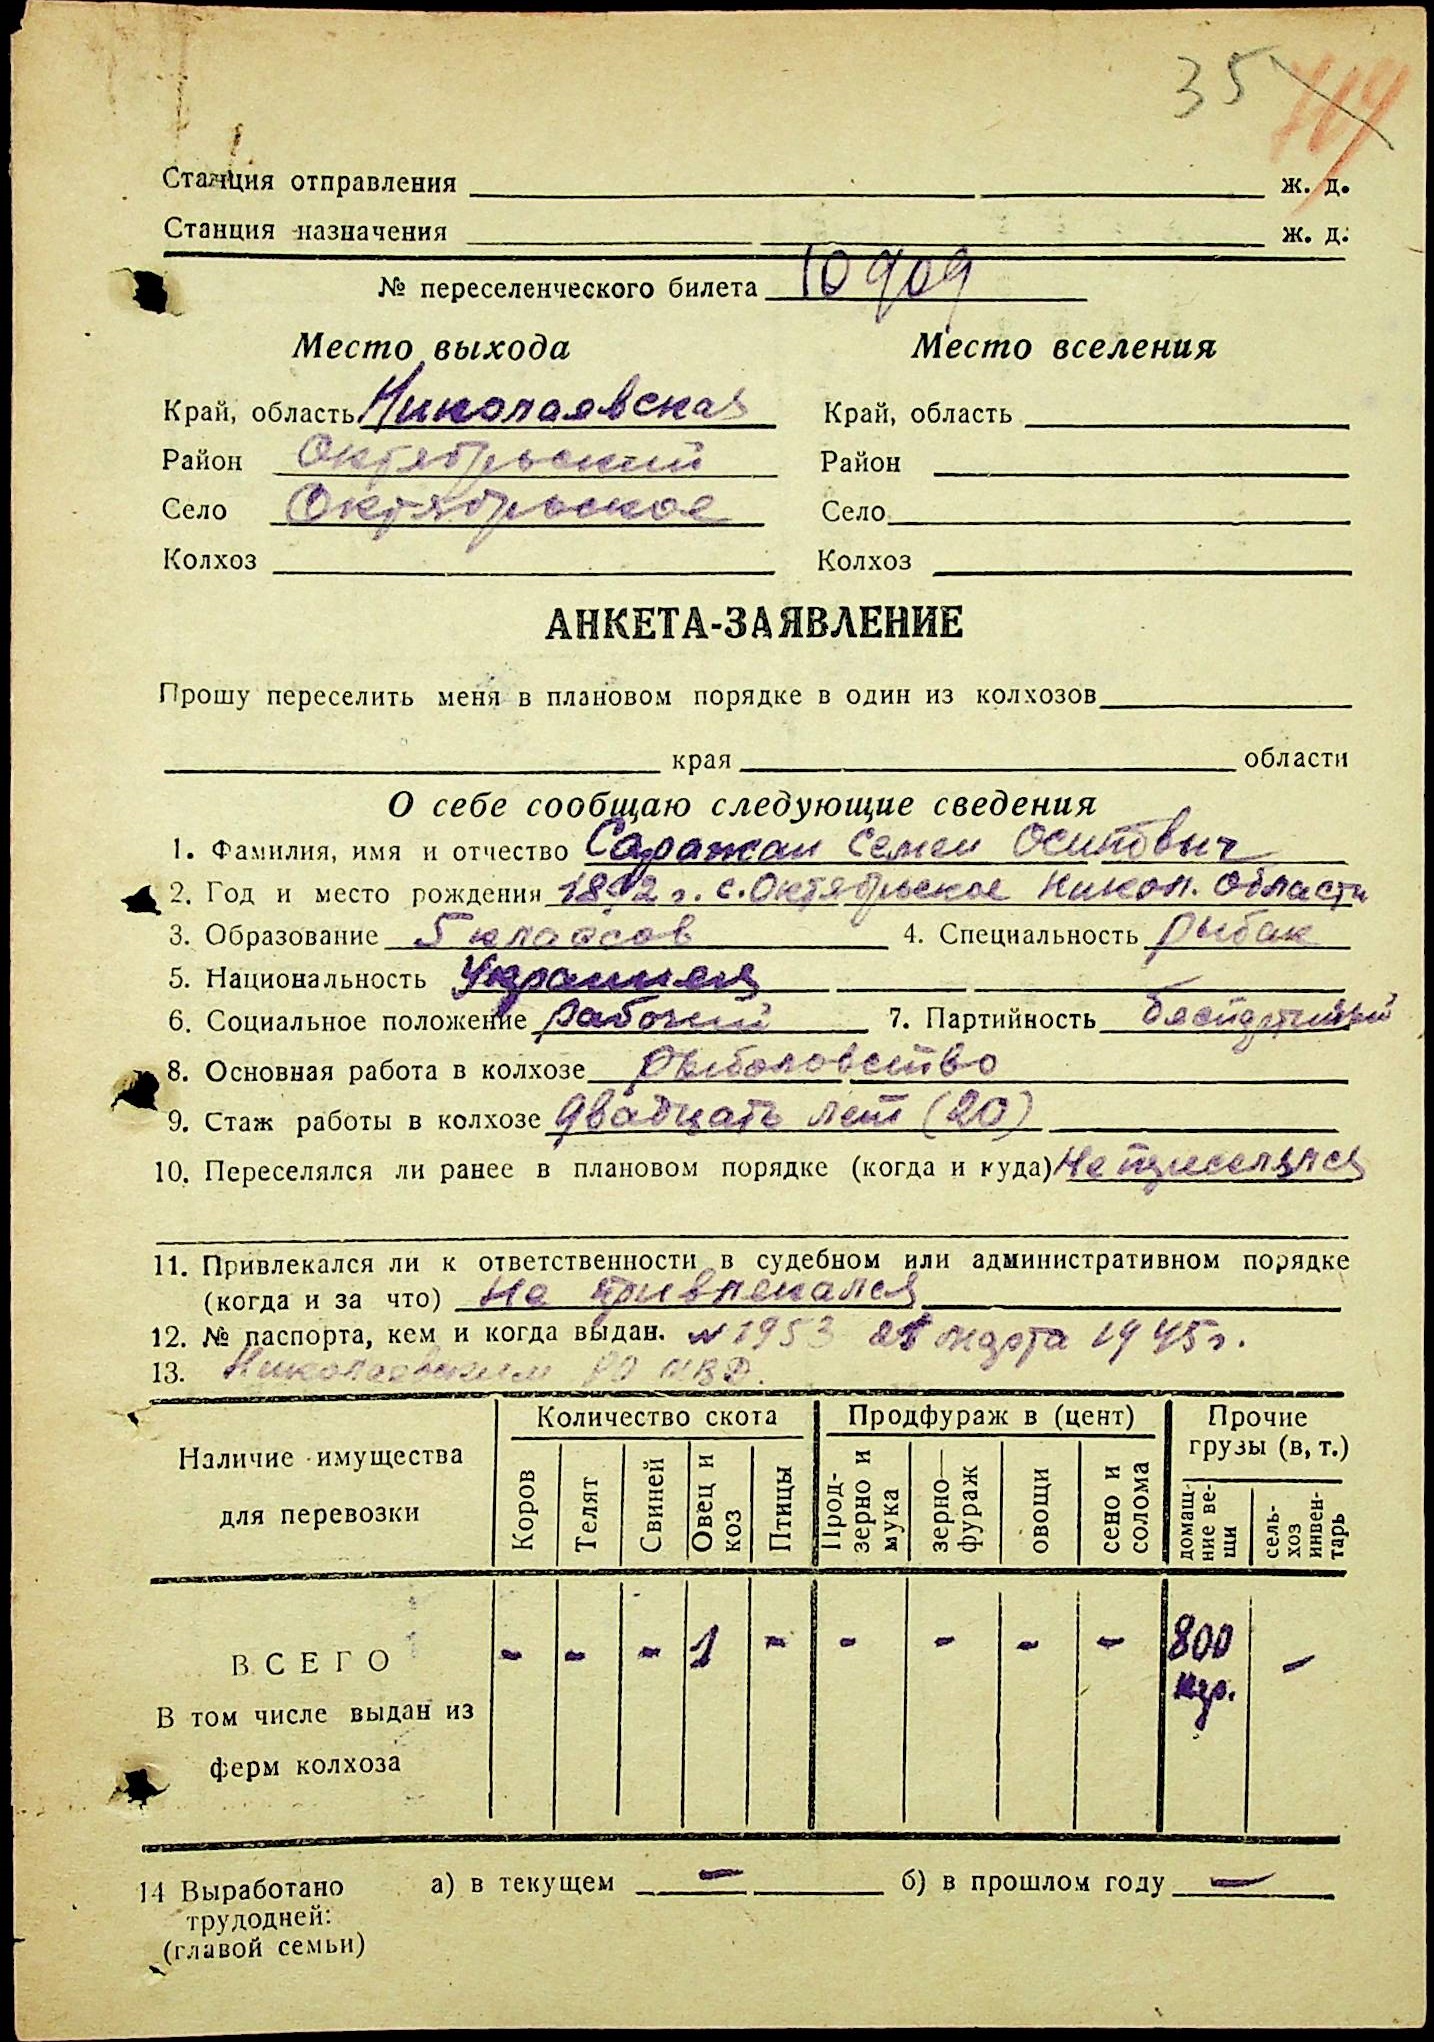 35 719
Станция отправления ж. д.
Станция назначения ж. д.
№ переселенческого билета 10909
Место выхода
Край, область Николаевская
Район Октябрьский
Село Октябрьское
Колхоз
Место вселения
Край, область
Район
Село
Колхоз
АНКЕТА-ЗАЯВЛЕНИЕ
Прошу переселить меня в плановом порядке в один из колхозов
края области
О себе сообщаю следующие сведения
1. Фамилия, имя и отчество Саражан Семен Осипович
2. Год и место рождения г. с. Октябрьское Никол. области
3. Образование 5 классов 4. Специальность рыбак
5. Национальность Украинец
6. Социальное положение рабочий 7. Партийность беспартийный
8. Основная работа в колхозе рыболовство
9. Стаж работы в колхозе двадцать лет (20)
10. Переселялся ли ранее в плановом порядке (когда и куда) Не переселялся
11. Привлекался ли к ответственности в судебном или административном порядке
(когда и за что) Не привлекался
12. № паспорта, кем и когда выдан. № 1953 марта 1945 г.
13. Николаевским РО НКВД.
Наличие имущества
для перевозки
Количество скота
Коров
Телят
Свиней
Овец и коз
Птицы
Продфураж в (цент)
Прод-зерно и мука
зерно—фураж
овощи
сено и солома
Прочие грузы (в, т.)
домаш-ние ве-щи
сель-хоз инвен-тарь
ВСЕГО - - - 1 - - - - - 800 кгр. -
В том числе выдан из
ферм колхоза
14 Выработано а) в текущем — б) в прошлом году —
трудодней:
(главой семьи)